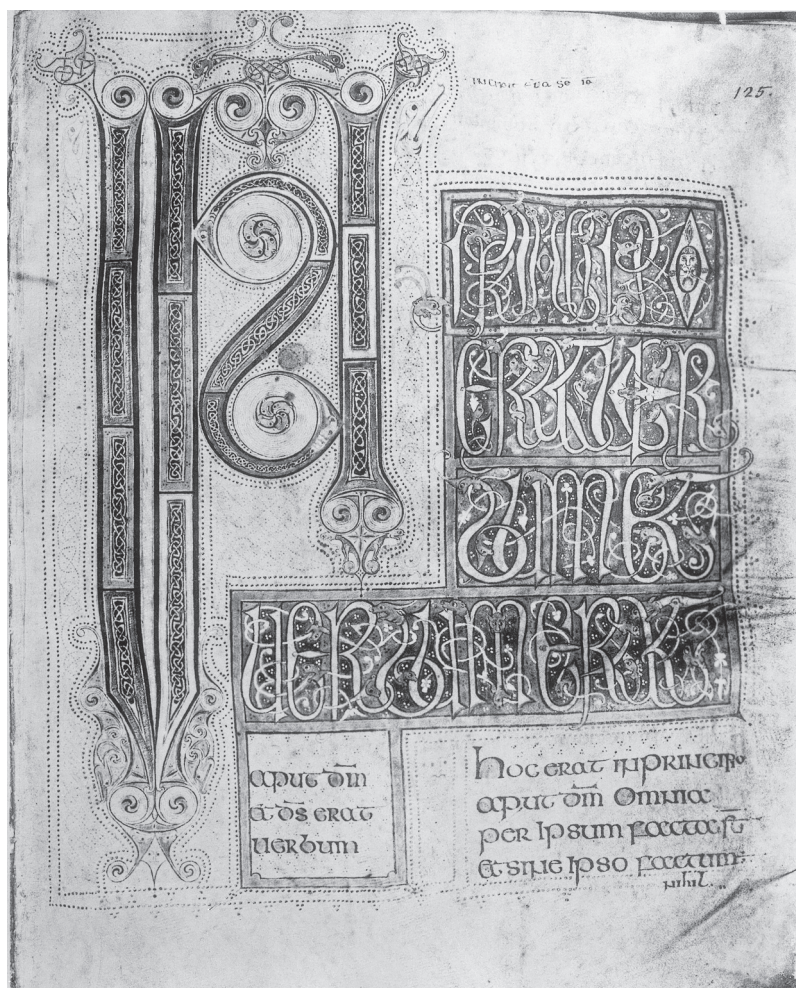 125.
IN
PRINCIPIO
ERAT UER
BUM ET
UERBUM ERAT
aput dm̄
et d̄s erat
uerbum
hoc erat in principio
aput dm̄ Omnia
per ipsum facta s̄t
et sine ipso factum
nihil